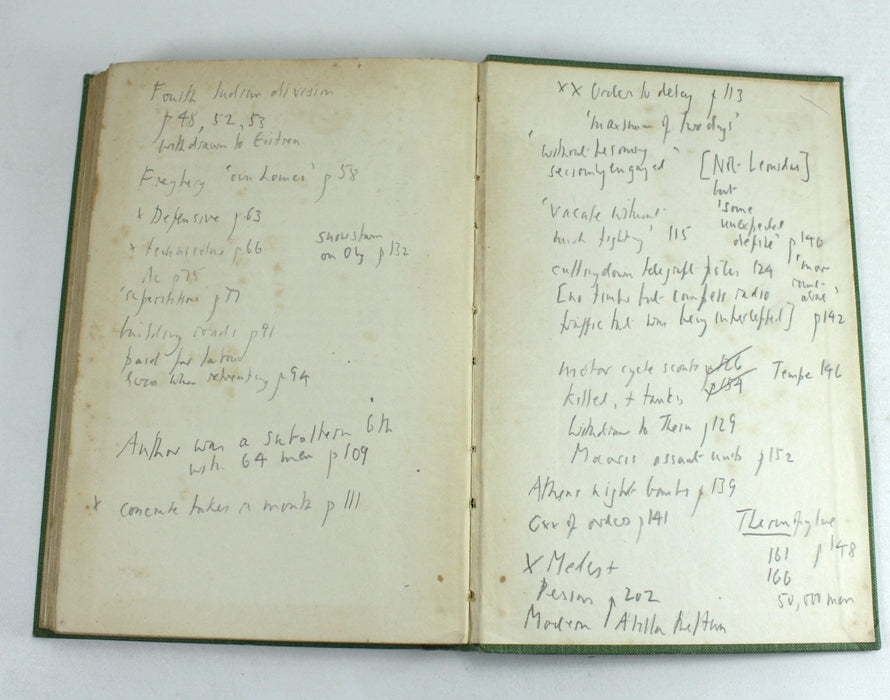 Fourth Indian division
p 48, 52, 53
withdrawn to Eritrea
Freyberg 'own homes' p 58
x Defensive p 63
x technicolor p 66
snowstorm
on Oly p 132
p 75
'superstition p 77
building roads p 91
paid for labour
even when retreating p 94
Author was a subaltern 6th
with 64 men p 109
x concrete takes a month p 111
xx Order to delay p 113
'maximum of two days'
'without becoming
seriously engaged"
[Not Leonidas]
but
'some
unexpected
defile' p 140
'vacate without
much fighting' 115
cutting down telegraph poles 124
[no timber but compels radio
traffic that was being intercepted] p 142
motor cycle scouts p 126
killed, + tanks p 154
Tempe 146
withdraw to Therm p 129
Maoris assault p 152
Athens night p 139
of orders p 141
Thermopylae
p 148
161
166
50,000 men
X Medes +
Persian p 202
Modern